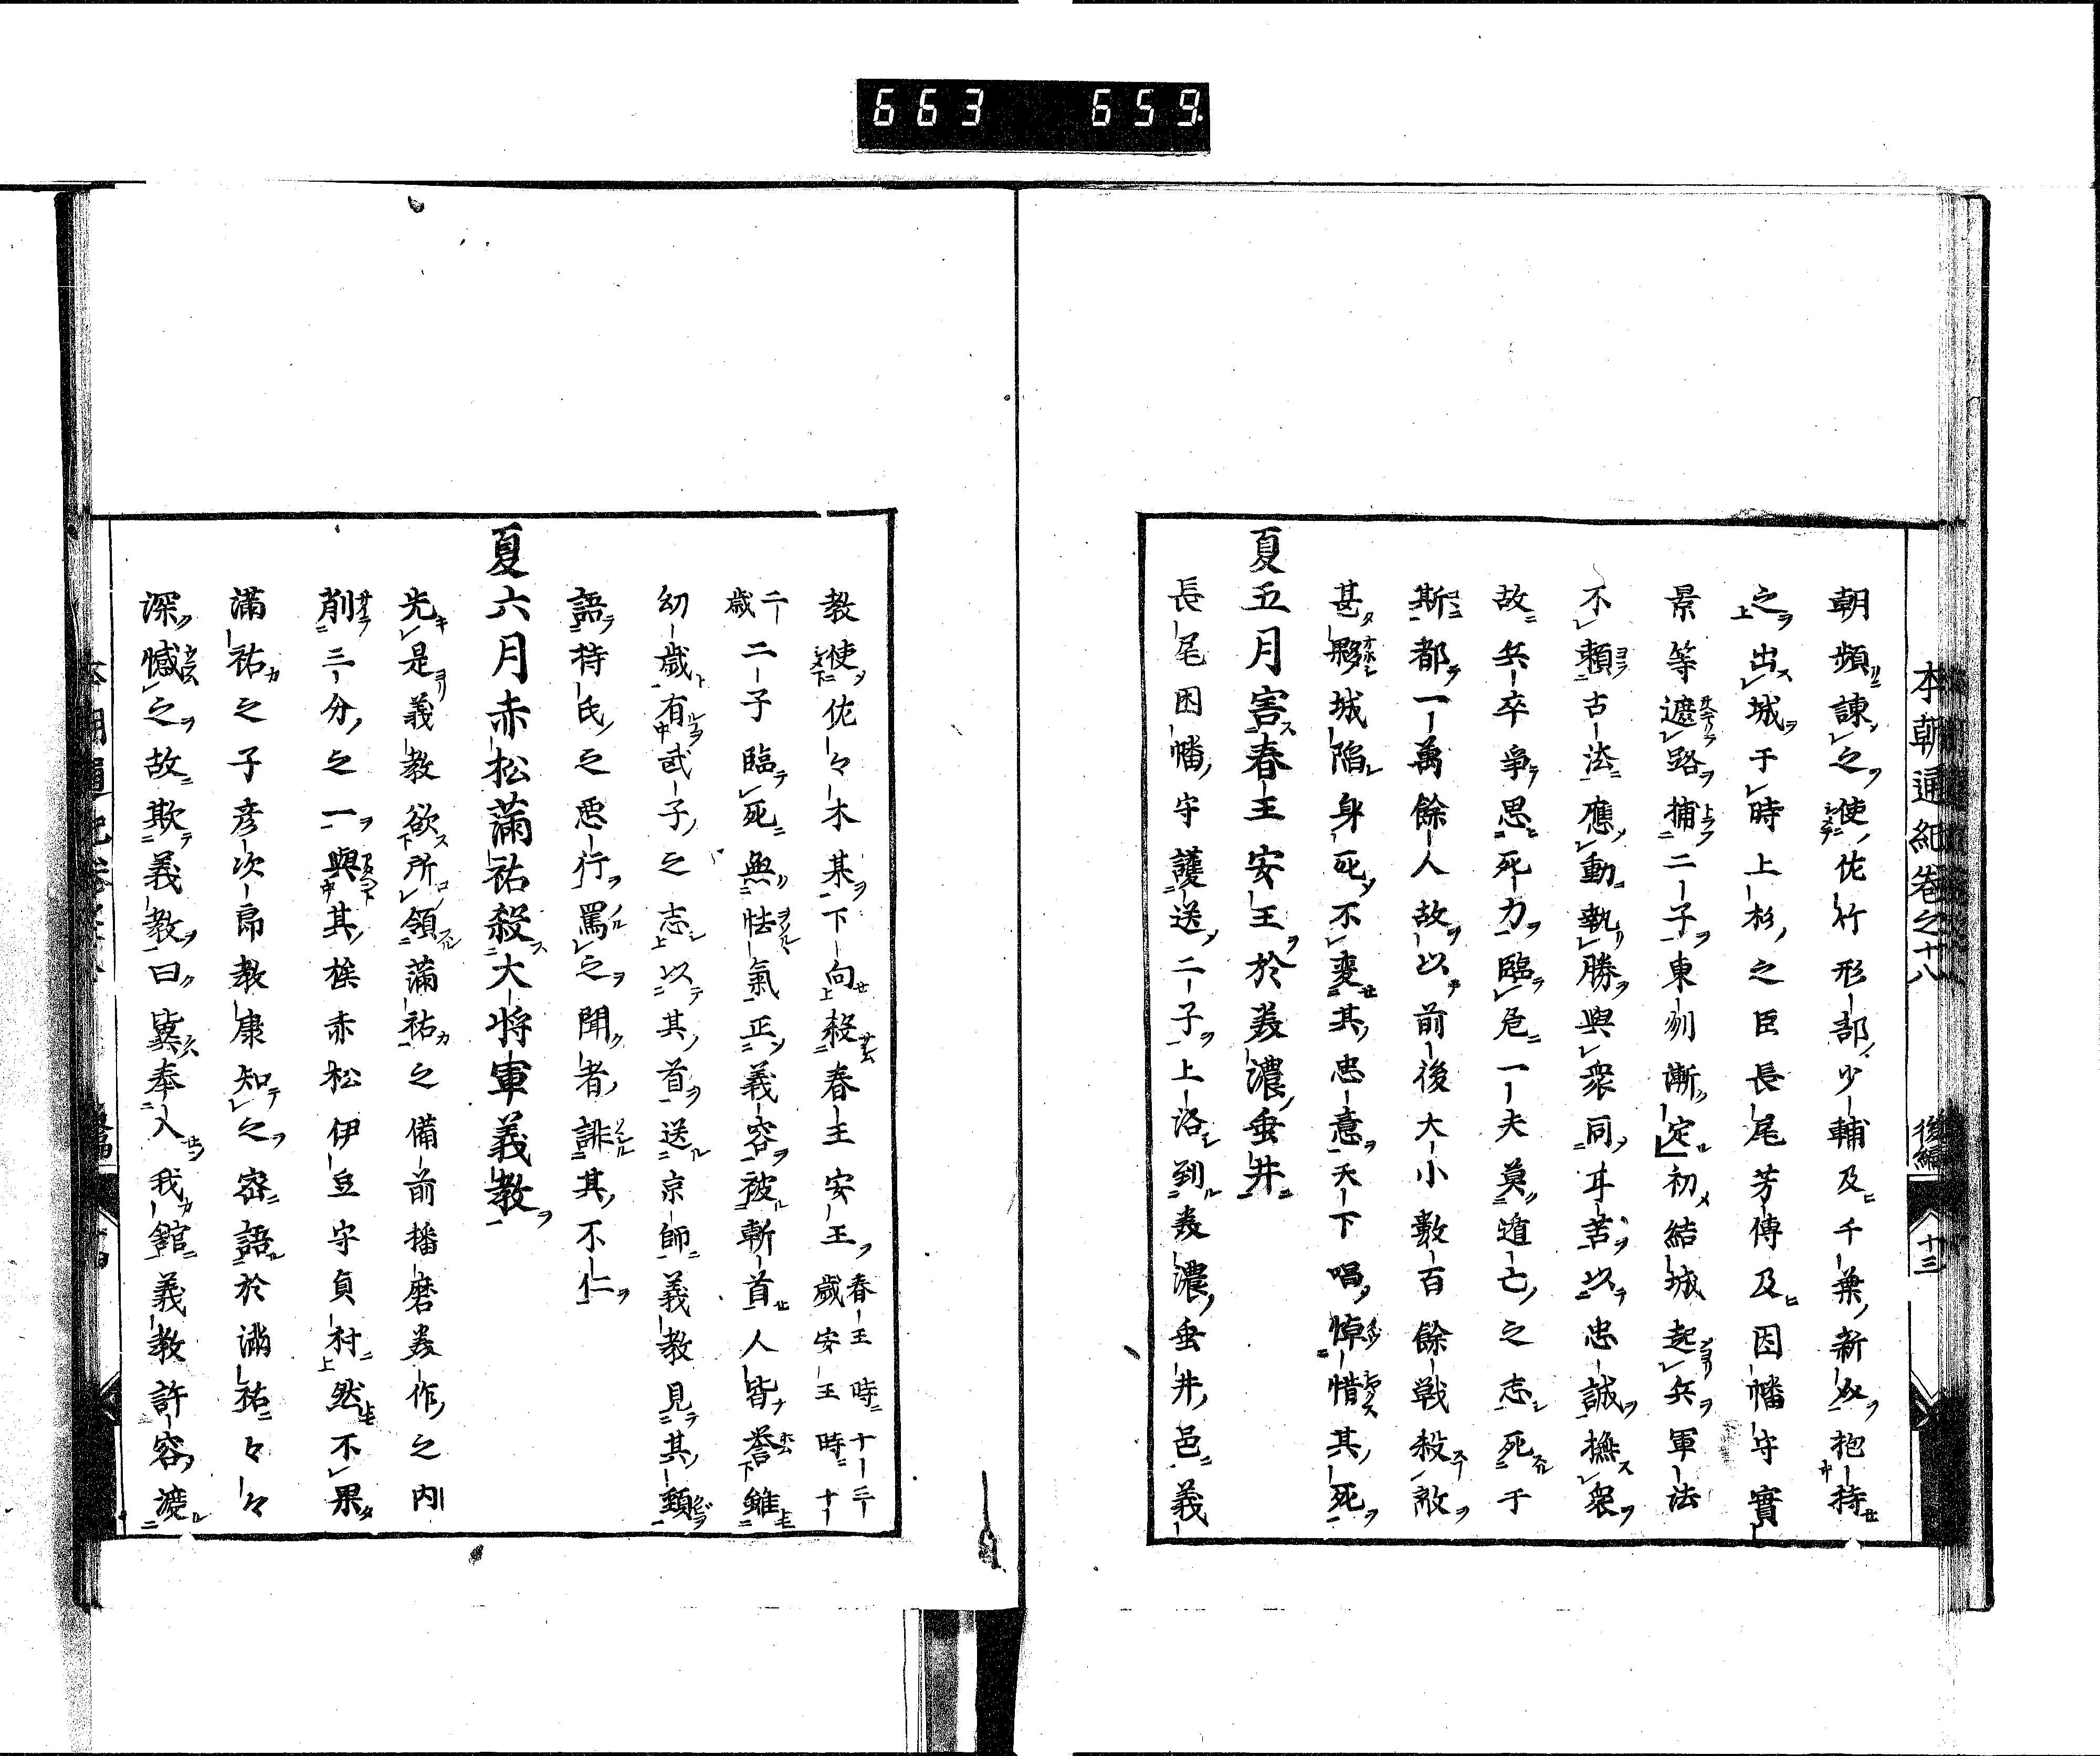 663 659.
本朝通紀卷之十八 後編 十三
朝頻諫之使佐竹形部少輔及千葉新奴抱持
之出城于時上杉之臣長尾芳傳及因幡守實
景等遮路捕二子東州漸定初結城起兵軍法
不頼古法應動執勝與衆同耳苦以忠誠撫衆
故兵卒爭思死力臨危一夫莫逭亡之志死于
斯都一萬餘人故以前後大小數百餘戦殺敵
甚夥城陷身死不変其忠意天下唱悼惜其死
夏五月害春王安王於美濃垂井
長尾因幡守護送二子上洛到美濃垂井邑義
教使佐々木某下向殺春王安王春王時十三歳安王時十
一歳二子臨死無怯氣正義容被斬首人皆誉雖
幼歳有武子之志以其首送京師義教見其頚
語持氏之悪行罵之聞者誹其不仁
夏六月赤松滿祐殺大将軍義教
先是義教欲所領滿祐之備前播磨美作之内
削三分之一與其族赤松伊豆守貞村然不果
滿祐之子彦次郎教康知之密語於滿祐々々
深憾之故欺義教曰冀奉入我館義教許容渡